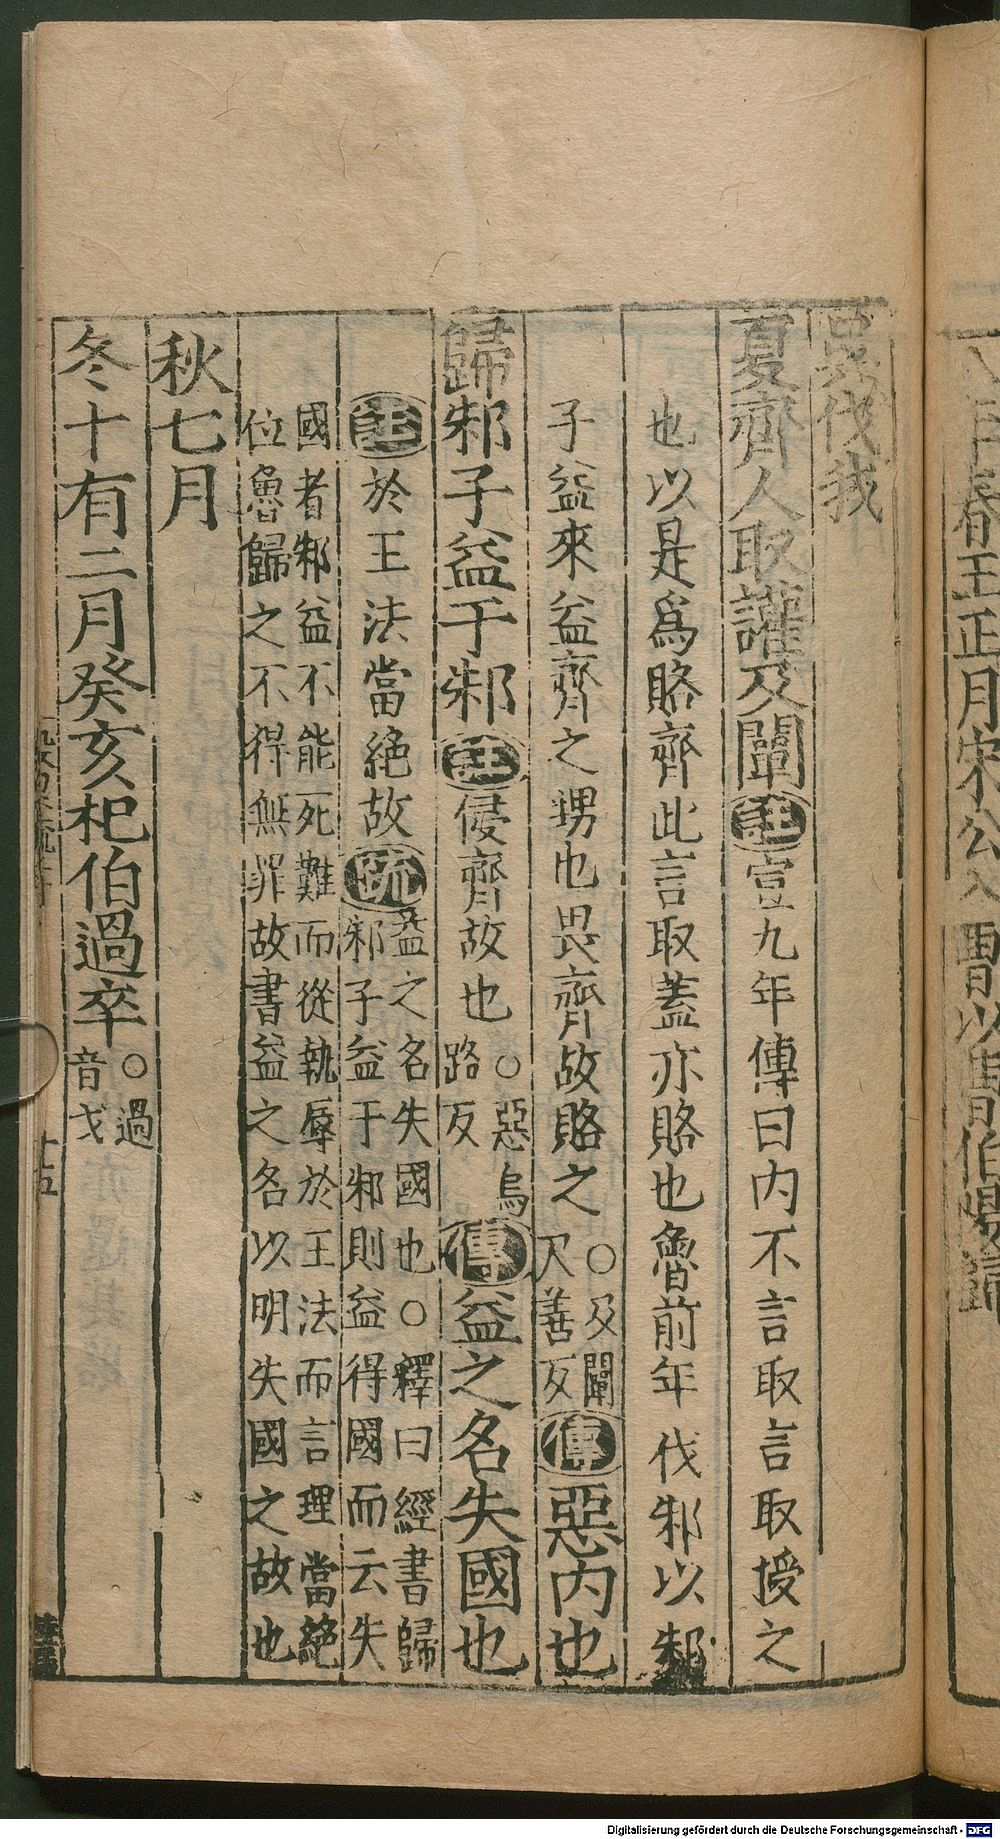 吳伐我
夏齊人取讙及闡註宣九年傳曰内不言取言取授之
也以是爲賂齊此言取蓋亦賂也魯前年伐邾以邾
子益來益齊之甥也畏齊故賂之○及闡尺善反傳惡内也
歸邾子益于邾註侵齊故也○惡烏路反傳益之名失國也
註於王法當絕故疏益之名失國也○釋曰經書歸邾子益于邾則益得國而云失
國者邾益不能死難而從執辱於王法而言理當絕
位魯歸之不得無罪故書益之名以明失國之故也
秋七月
冬十有二月癸亥杞伯過卒○過音戈
十五
春王正月宋公入曹以曹伯陽歸
Digitalisierung gefördert durch die Deutsche Forschungsgemeinschaft - DFG